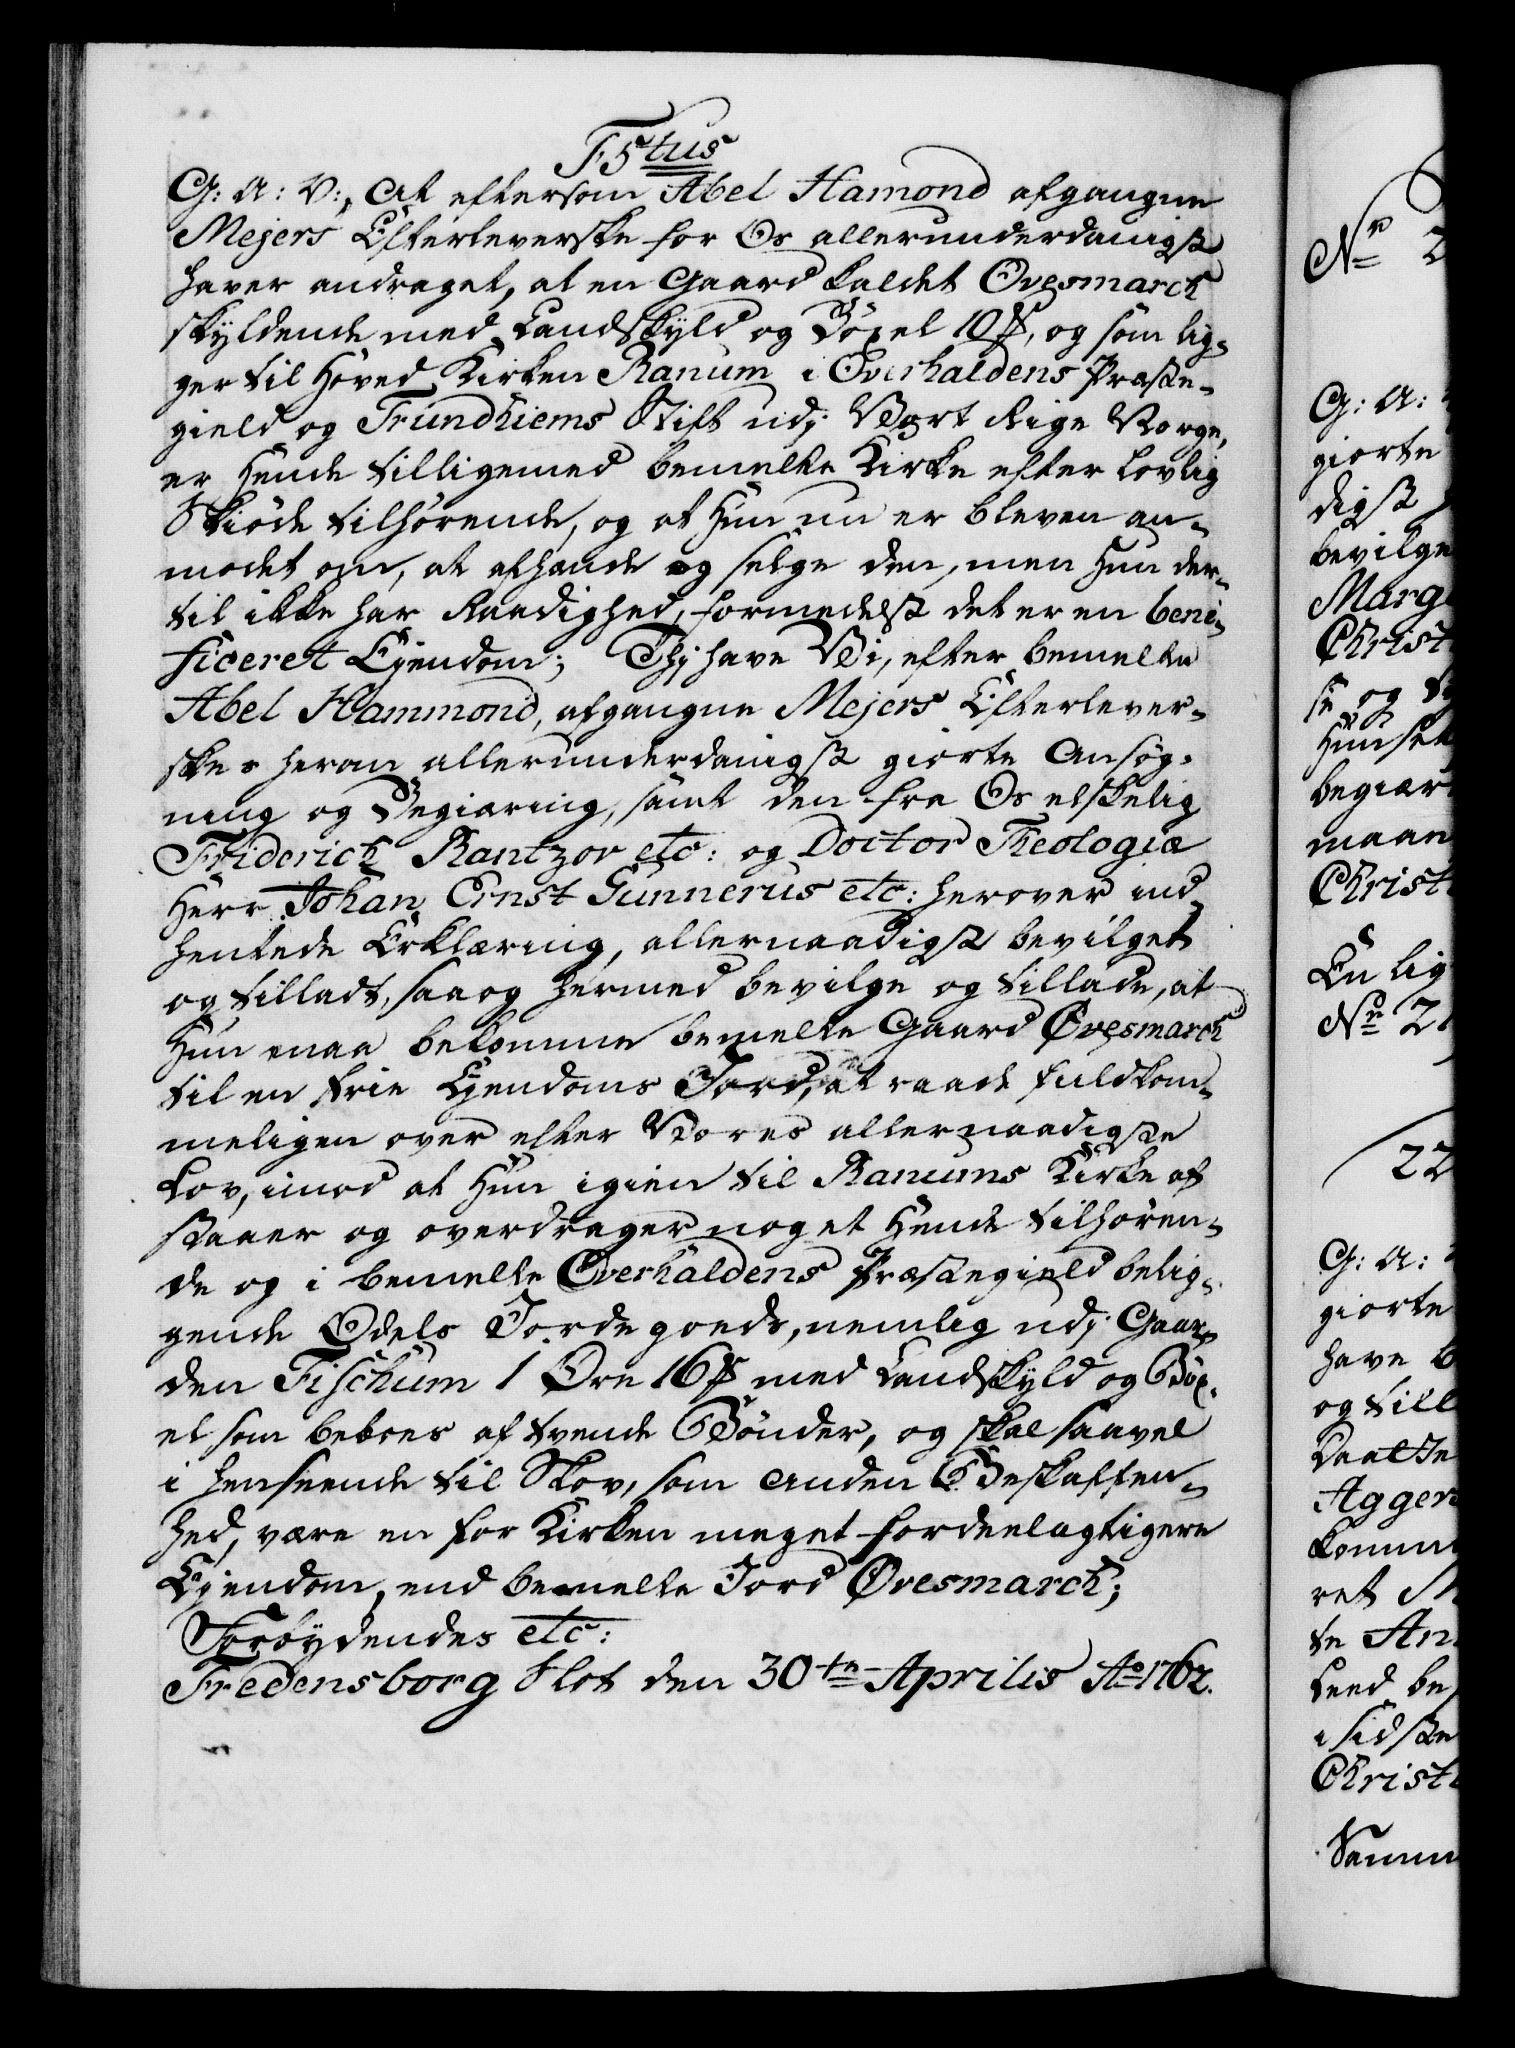 F5tus
G: A: V:, At eftersom Abel Hamond afgangne
Mejers Efterleverske for Os allerunderdanigst
haver andraget, at en Gaard kaldet Ovesmarch
skyldende med Landskyld og Böxel 10 ß, og som lig-
ger til Hoved Kirken Ranum i Overhaldens Præste-
gield og Trundhiems Stift udj Vort Rige Norge,
er Hende tilligemed bemelte Kirke efter lovlig
Skiøde tilhørende, og at Hun nu er bleven an-
modet om, at afhænde og selge den, men Hun der-
til ikke har Raadighed, formedelst det er en bene-
ficeret Eiendom; Thj have Vi, efter bemelte
Abel Hammond, afgangne Mejers Efterlever-
skes herom allerunderdanigst giorte Ansøg-
ning og Begiæring, samt den fra Os elskelig
Friderich Rantzov etc: og Doctor Theologiæ
Herr Johan Ernst Gunnerus etc: herover ind-
hentede Erklæring, allernaadigst bevilget
og tilladt, saa og hermed bevilge og tillade, at
Hun maa bekomme bemelte Gaard Øvesmarch
til en frie Ejendoms Jord, at raade fuldkom-
meligen over efter Vores allernaadigste
Lov, imod at Hun igien til Ranums Kirke af-
staaer og overdrager noget Hende tilhøren-
de og i bemelte Overhaldens Præstegield belig-
gende Odels Jordegods, nemlig udj Gaar-
den Fischum 1 Øre 16 ß med Landskyld og Böx-
el som beboes af tvende Bönder, og skal saavel
i henseende til Skov, som anden Beskaffen-
hed, være en for Kirken meget fordeelagtigere
Ejendom, end bemelte Jord Øvesmarch;
Forbydendes etc:
Fredensborg Slot den 30te Aprilis Ao 1762.
Nr 2
G: A:
giorte
digst
bevilge
Marg
Christ
se og
Hun
begiær
maan
Christ
En lig
No 21
22
G: A:
giorte
have b
og till
Daatte
Agger
komm
ret M
te An
Leed be
i sidste
Christ
Samm